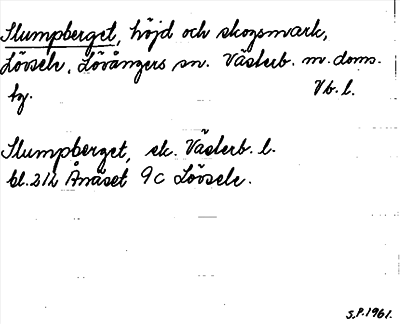 Slumpberget, höjd och skogsmark,
Lövsele, Lövångers sn. Västerb. n. doms.
hg. Vb. l.
Slumpberget, ek. Västerb. l.
bl. 212 Ånäset 9C Lövsele.
S.P. 1961.